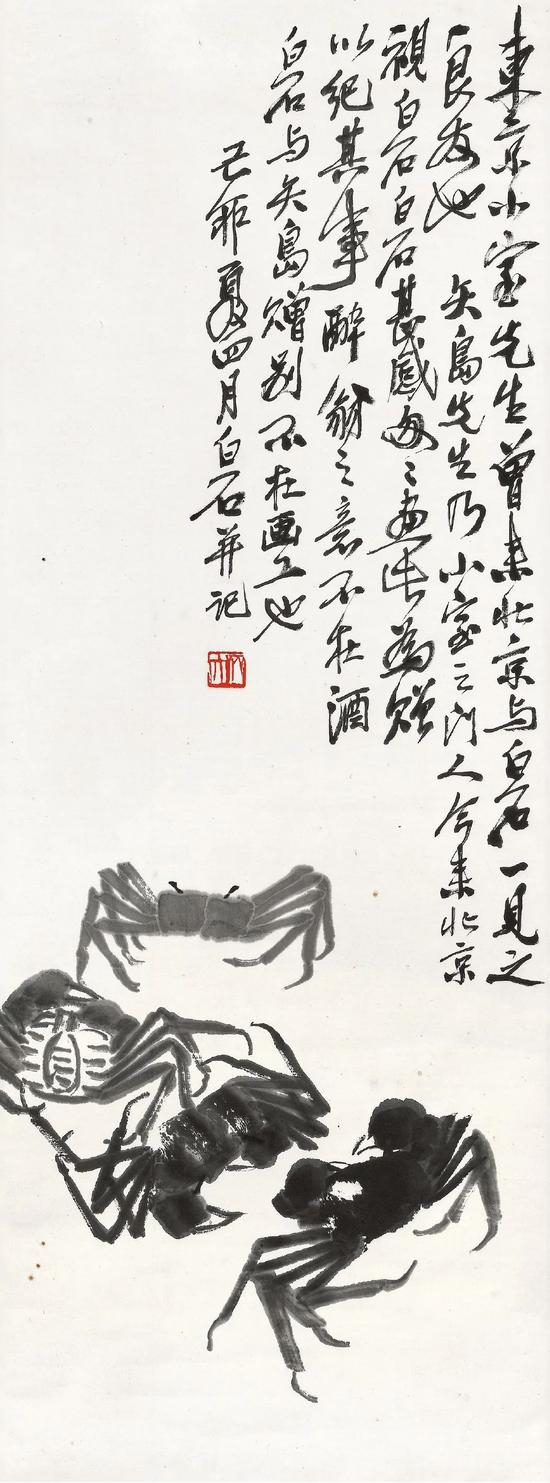 東京小室先生曾来北京与白石一見之
良友也 矢島先生乃小室之門人今来北京
視白石白石甚感因之画此為贈
以紀其事 醉翁之意不在酒
白石与矢島贈別不在画工也
夏四月白石并記